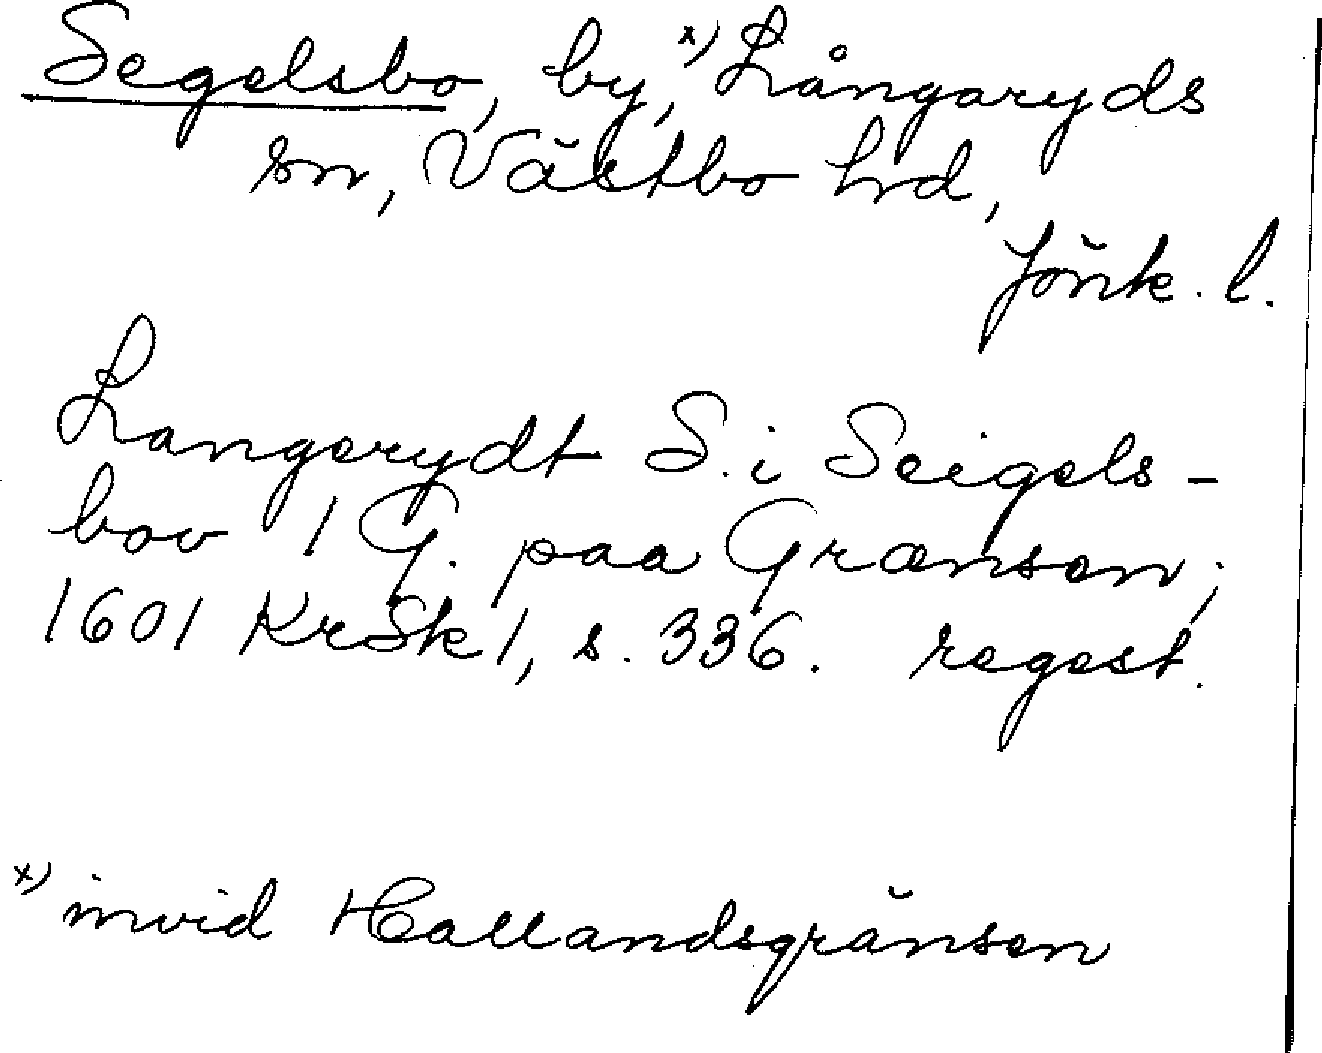 Segelsbo, by,x) Långaryds
sn, Västbo hrd,
Jönk. l.
Langerydt S. i Seigels-
bov 1 G. paa Grænsen;
1601 KrSk 1, s. 336. regest.
x) invid Hallandsgränsen